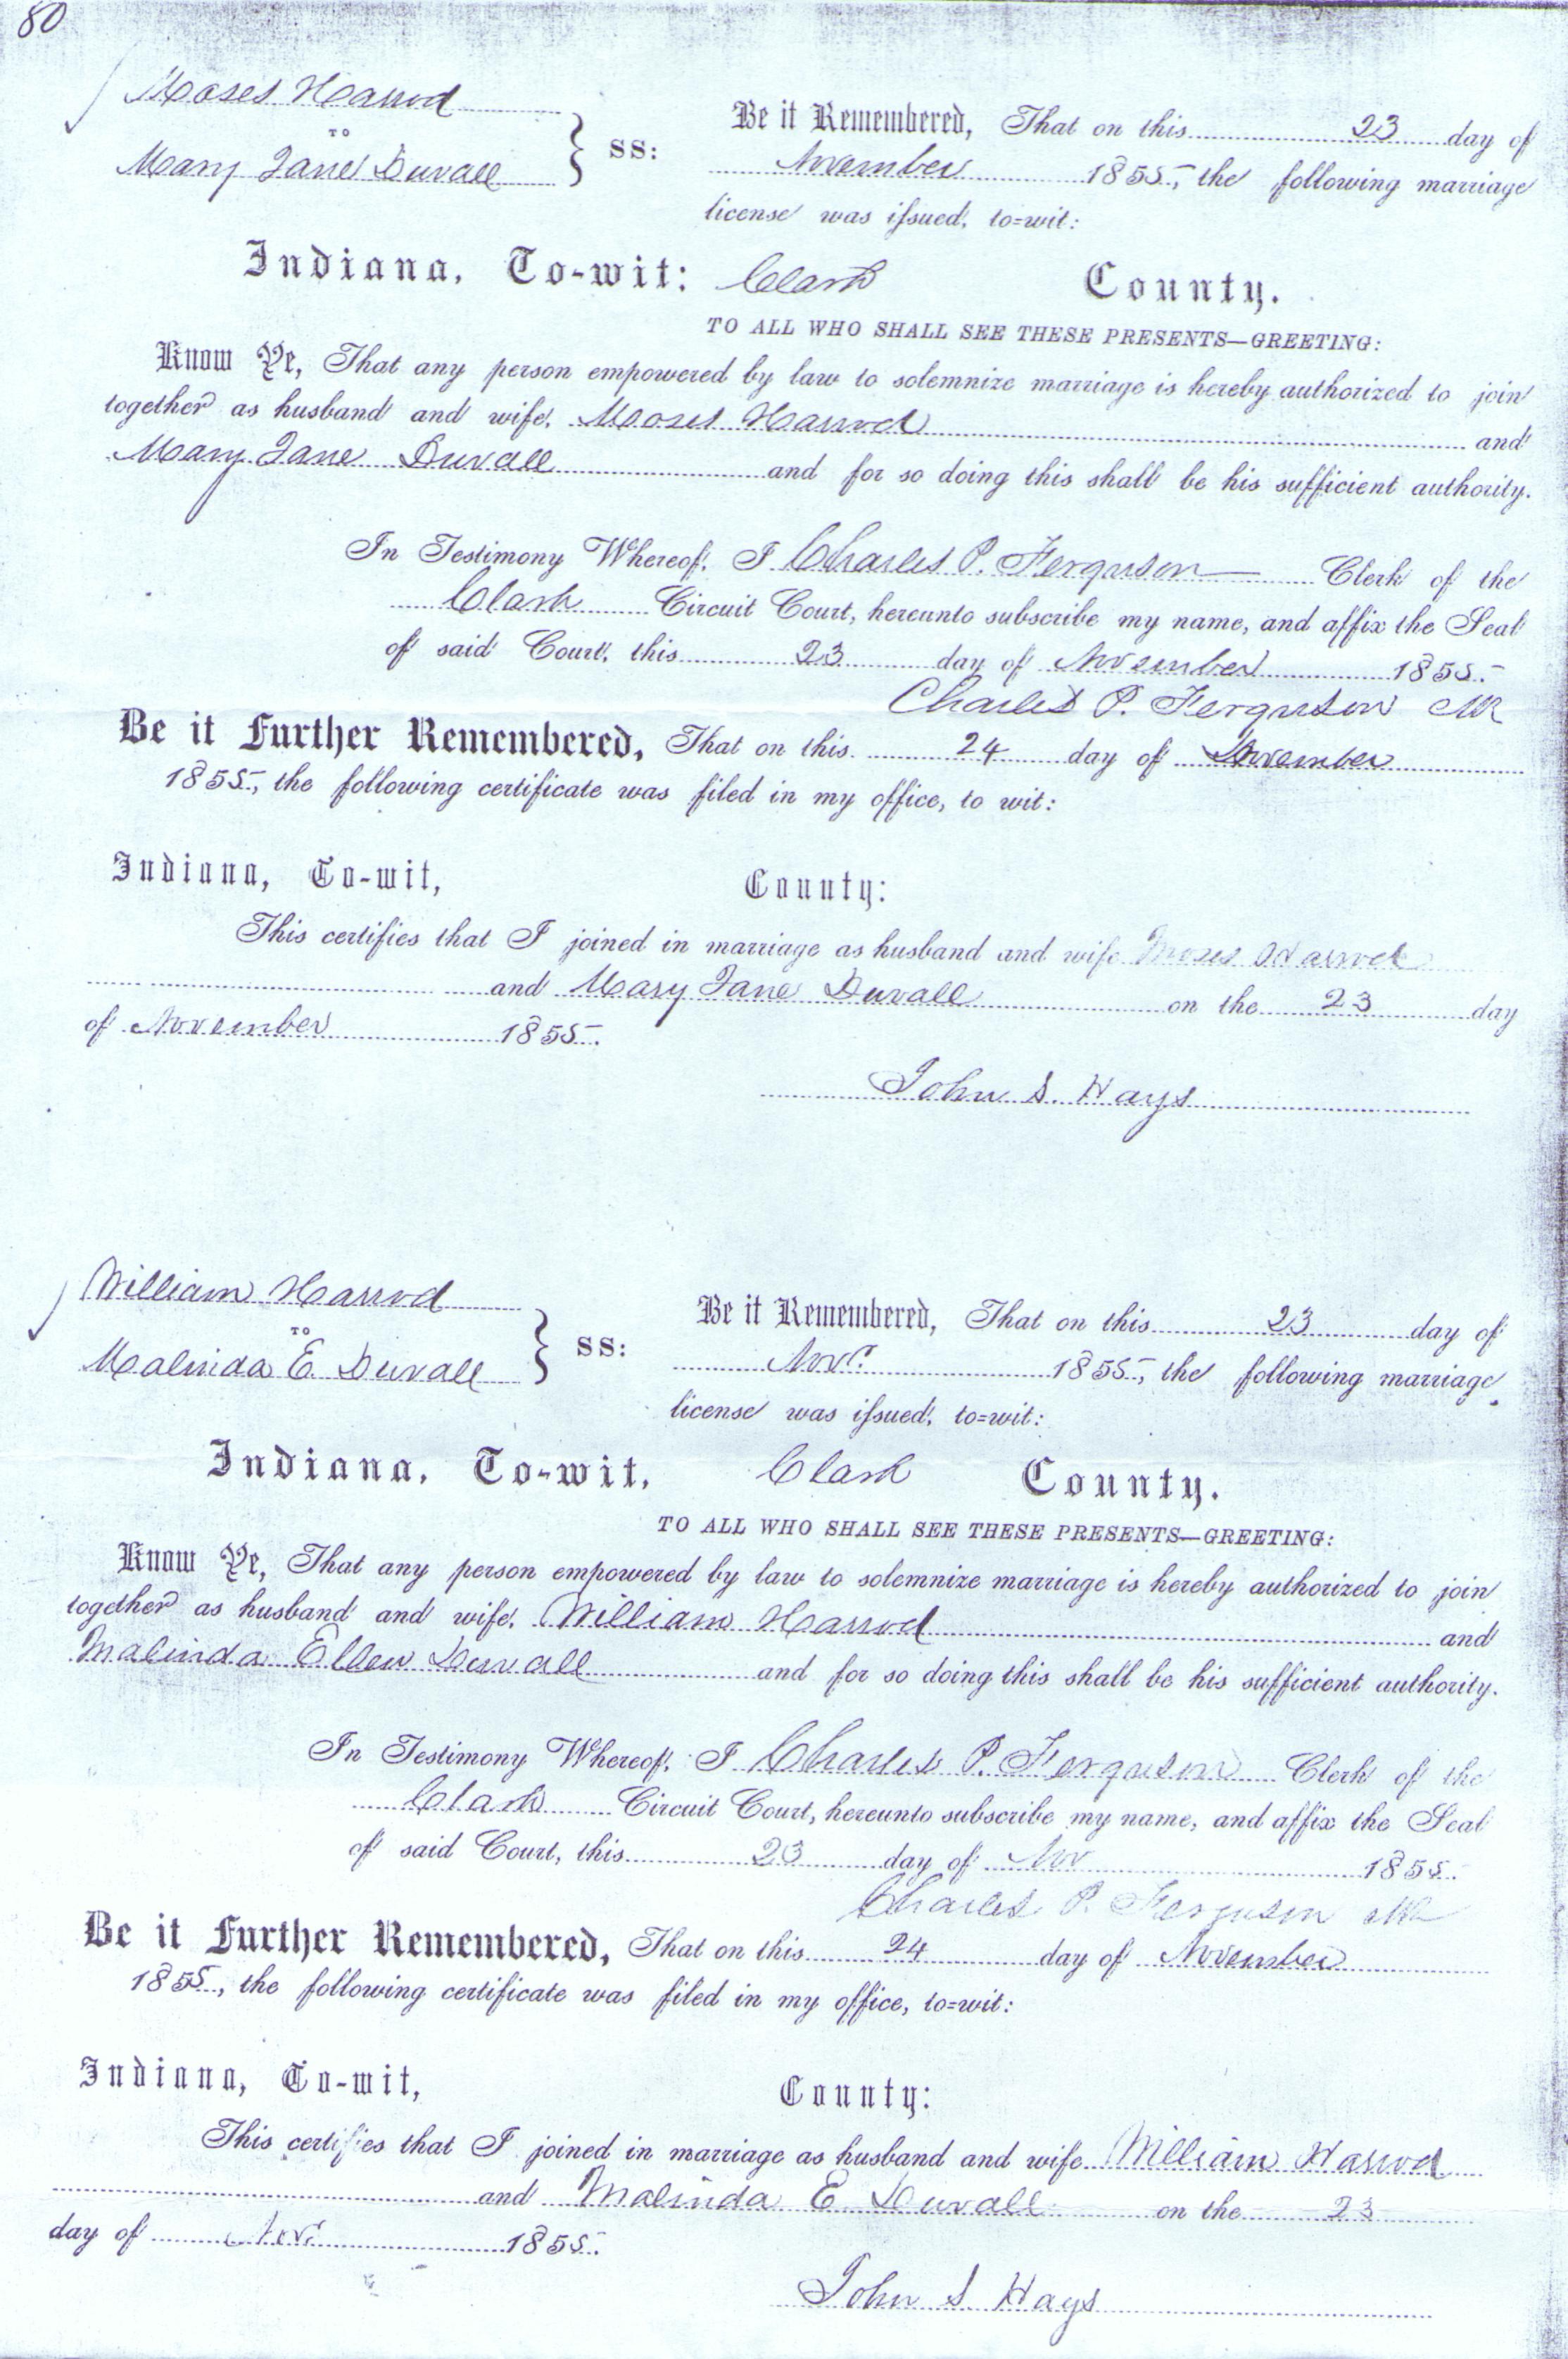 80
Moses Harrod
TO
Mary Jane Duvall
} SS:
Be it Remembered, That on this 23 day of
November 1855, the following marriage
license was issued, to=wit:
Indiana, To-wit: Clark County.
TO ALL WHO SHALL SEE THESE PRESENTS—GREETING:
Know Ye, That any person empowered by law to solemnize marriage is hereby authorized to join
together as husband and wife, Moses Harrod and
Mary Jane Duvall and for so doing this shall be his sufficient authority.
In Testimony Whereof, I Charles P. Ferguson Clerk of the
Clark Circuit Court, hereunto subscribe my name, and affix the Seal
of said Court, this 23 day of November 1855.
Charles P. Ferguson Clk
Be it Further Remembered, That on this 24 day of November
1855, the following certificate was filed in my office, to wit:
Indiana, To-wit, County:
This certifies that I joined in marriage as husband and wife Moses Harrod
and Mary Jane Duvall on the 23 day
of November 1855.
John S. Hays
William Harrod
TO
Malinda E. Duvall
} SS:
Be it Remembered, That on this 23 day of
Novr. 1855, the following marriage
license was issued, to=wit:
Indiana, To-wit, Clark County.
TO ALL WHO SHALL SEE THESE PRESENTS—GREETING:
Know Ye, That any person empowered by law to solemnize marriage is hereby authorized to join
together as husband and wife, William Harrod and
Malinda Ellen Duvall and for so doing this shall be his sufficient authority.
In Testimony Whereof, I Charles P. Ferguson Clerk of the
Clark Circuit Court, hereunto subscribe my name, and affix the Seal
of said Court, this 23 day of Nov 1855.
Charles P. Ferguson Clk
Be it Further Remembered, That on this 24 day of November
1855, the following certificate was filed in my office, to=wit:
Indiana, To-wit, County:
This certifies that I joined in marriage as husband and wife William Harrod
and Malinda E Duvall on the 23
day of Nov. 1855.
John S Hays